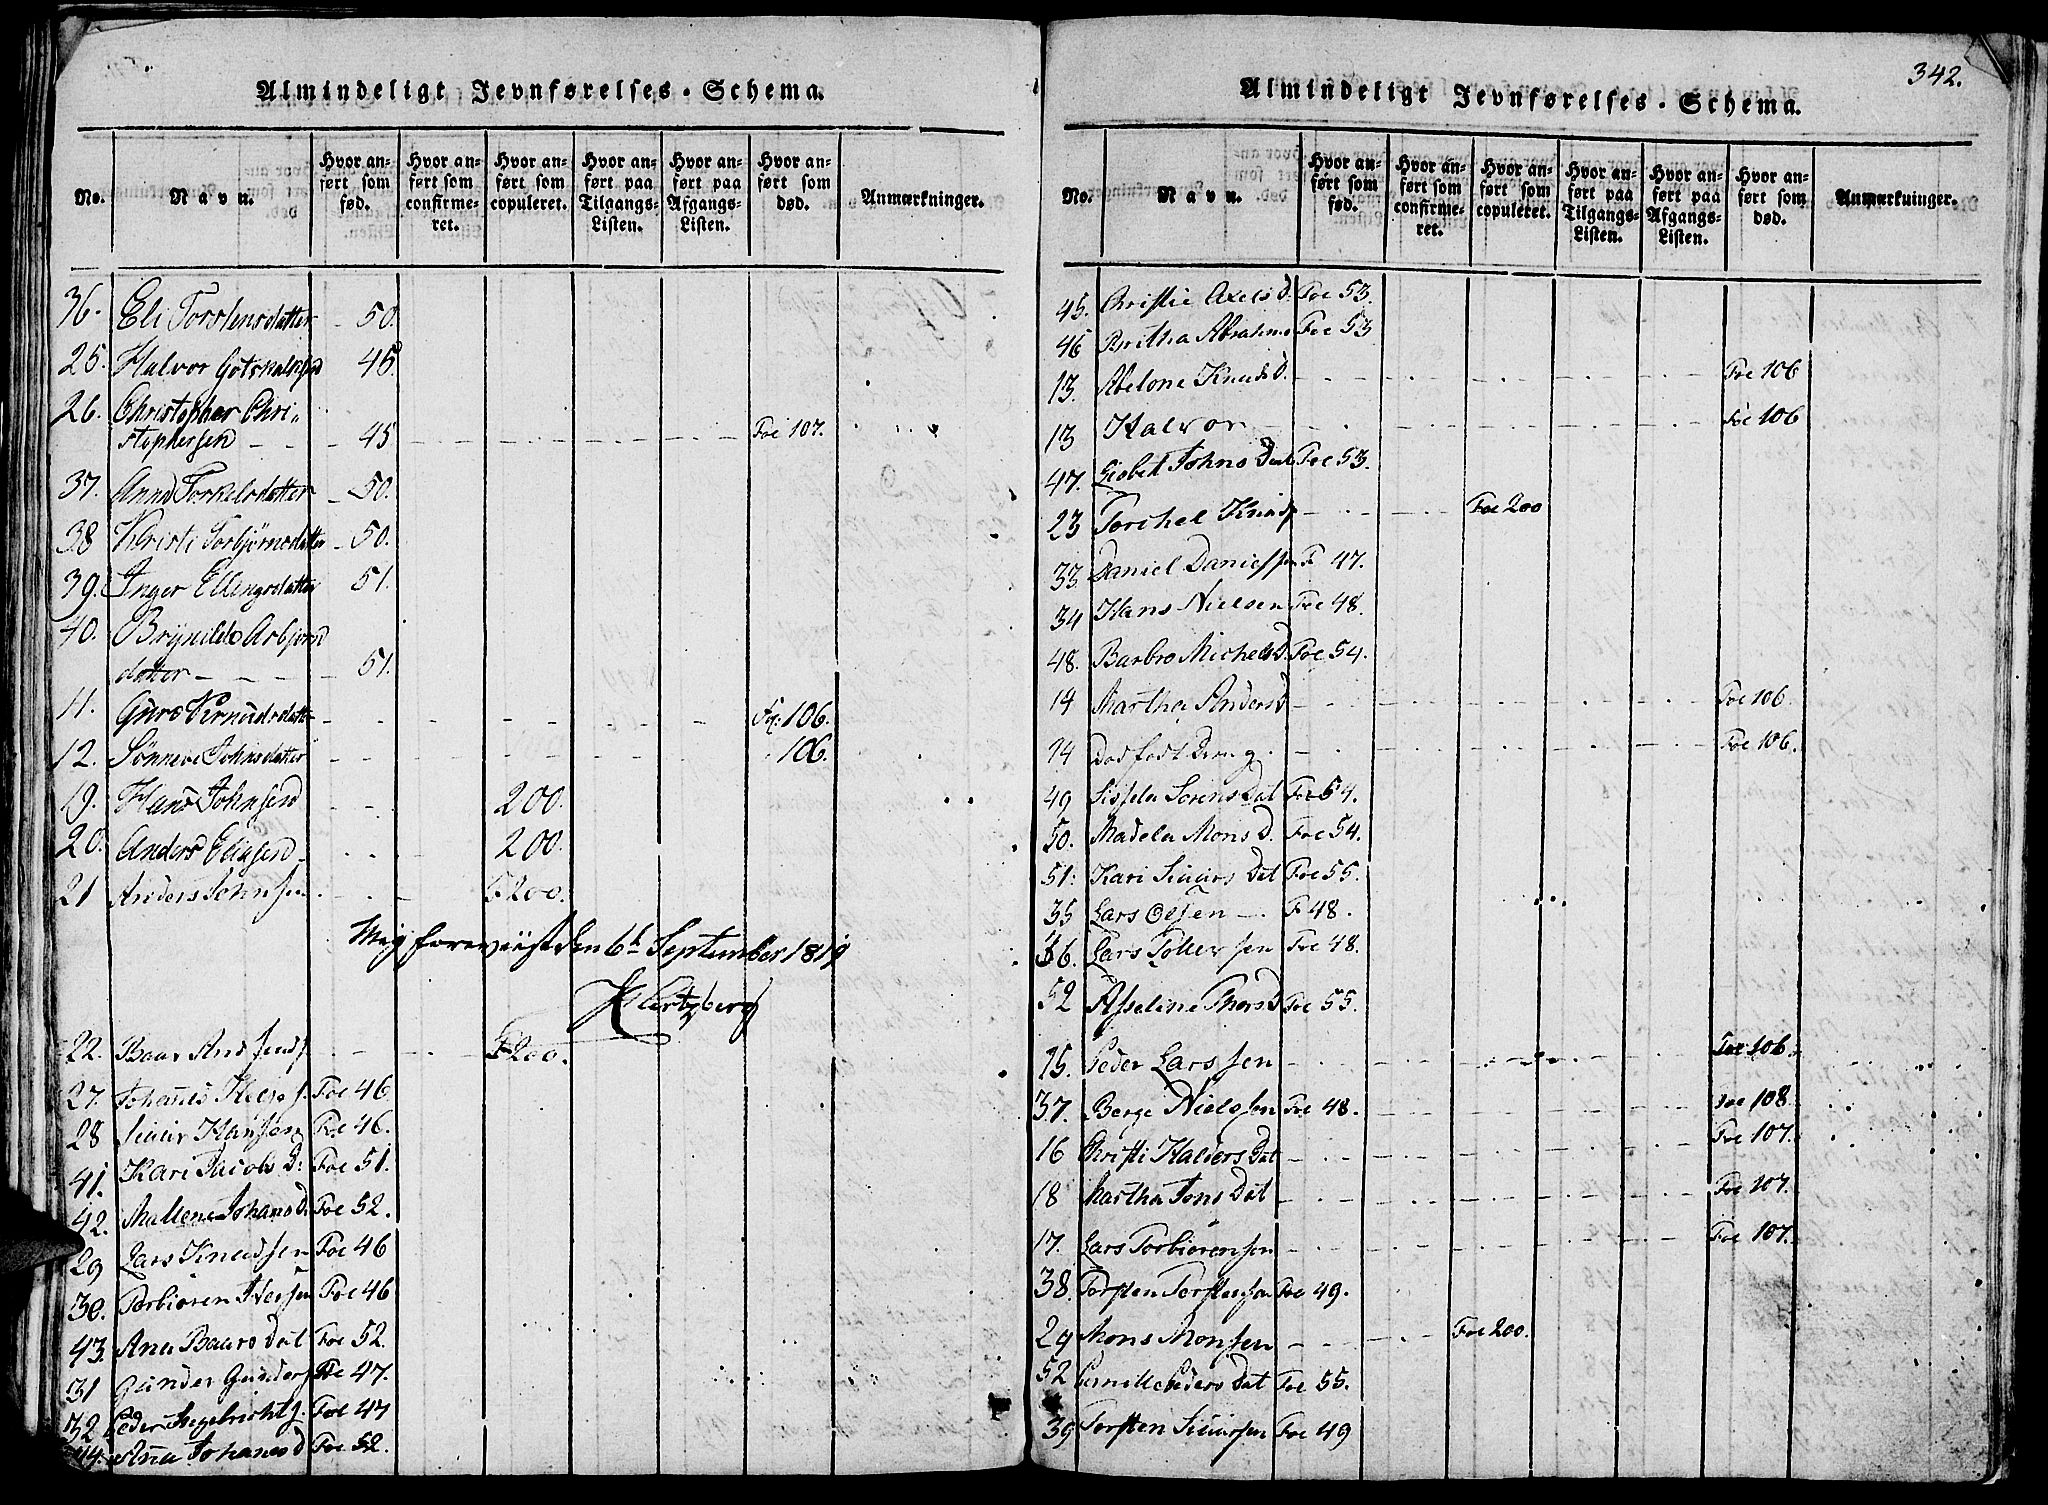 Almindeligt Jevnførelses-Schema.
No. Navn. Hvor anført som fød. Hvor anført som confirmeret. Hvor anført som copuleret. Hvor anført paa Tilgangs-Listen. Hvor anført paa Afgangs-Listen. Hvor anført som død. Anmærkninger.
36. Eli Torstensdatter - 50.
25. Halvor 45.
26. Christopher Chri-
stophersen - - 45 Foe 107.
37. Anna Torkelsdatter - 50.
38 Kristi Torbjörnsdatter - 50.
39. Inger Ellingsdatter 51.
40. Brynilda Asbjörns
datter - - - - 51.
11. Guro Knudsdatter 106.
12. Sönneve Johnsdatter 106.
19. Hans Johnsen 200.
20. Anders Eliasen 200.
21 Anders Johnsen F 200.
Mig foreviist den 6t September 1819
Hertzberg
22. Baar F 200.
27. Johanes Foe 46.
28 Siuur Hansen Foe 46.
41. Kari Jacobs D: Foe 51.
42. Mallene Johans D. Foe 52.
29 Lars Knudsen Foe 46
30. Torbiören Iversen Foe 46
43. Ana Baars Dat Foe 52.
31 Gunder Gunders Foe 47.
32 Peder Foe 47
44. Ana Johanes D. Foe 52.
342.
Almindeligt Jevnførelses-Schema.
No. Navn. Hvor anført som fød. Hvor anført som confirmeret. Hvor anført som copuleret. Hvor anført paa Tilgangs-Listen. Hvor anført paa Afgangs-Listen. Hvor anført som død. Anmærkninger.
45. Christie Axels D. Foe 53.
46 Britha Abrahms Foe 53
13. Abelone Knuds D. Foe 106
13 Halvor Foe 106
47. Lisbet Johns Dat Foe 53.
23 Torchel Knuds Foe 200
33 Daniel Danielssen F 47.
34 Hans Nielsen Foe 48.
48. Barbro Michels D. Foe 54.
14 Martha Anders D Foe 106
14 Dødfødt Dreng Foe 106.
49 Sissela Sörens Dat Foe 54.
50. Madela Mons D. Foe 54.
51. Kari Siuurs Dat Foe 55.
35 Lars Olsen F 48.
36. Lars Tollevsen Foe 48.
52 Asseline Thors D Foe 55.
15. Peder Larssen Foe 106
37. Berge Nielssen Foe 48. Foe 108.
16 Christi Halvors Dat Foe 107.
18 Martha Jons Dat Foe 107.
17. Lars Torbiörensen Foe 107.
38. Torsten Torstensen Foe 49.
29 Mons Monsen Foe 200.
52 Pernille Peders Dat Foe 55.
39 Torsten Siuursen Foe 49